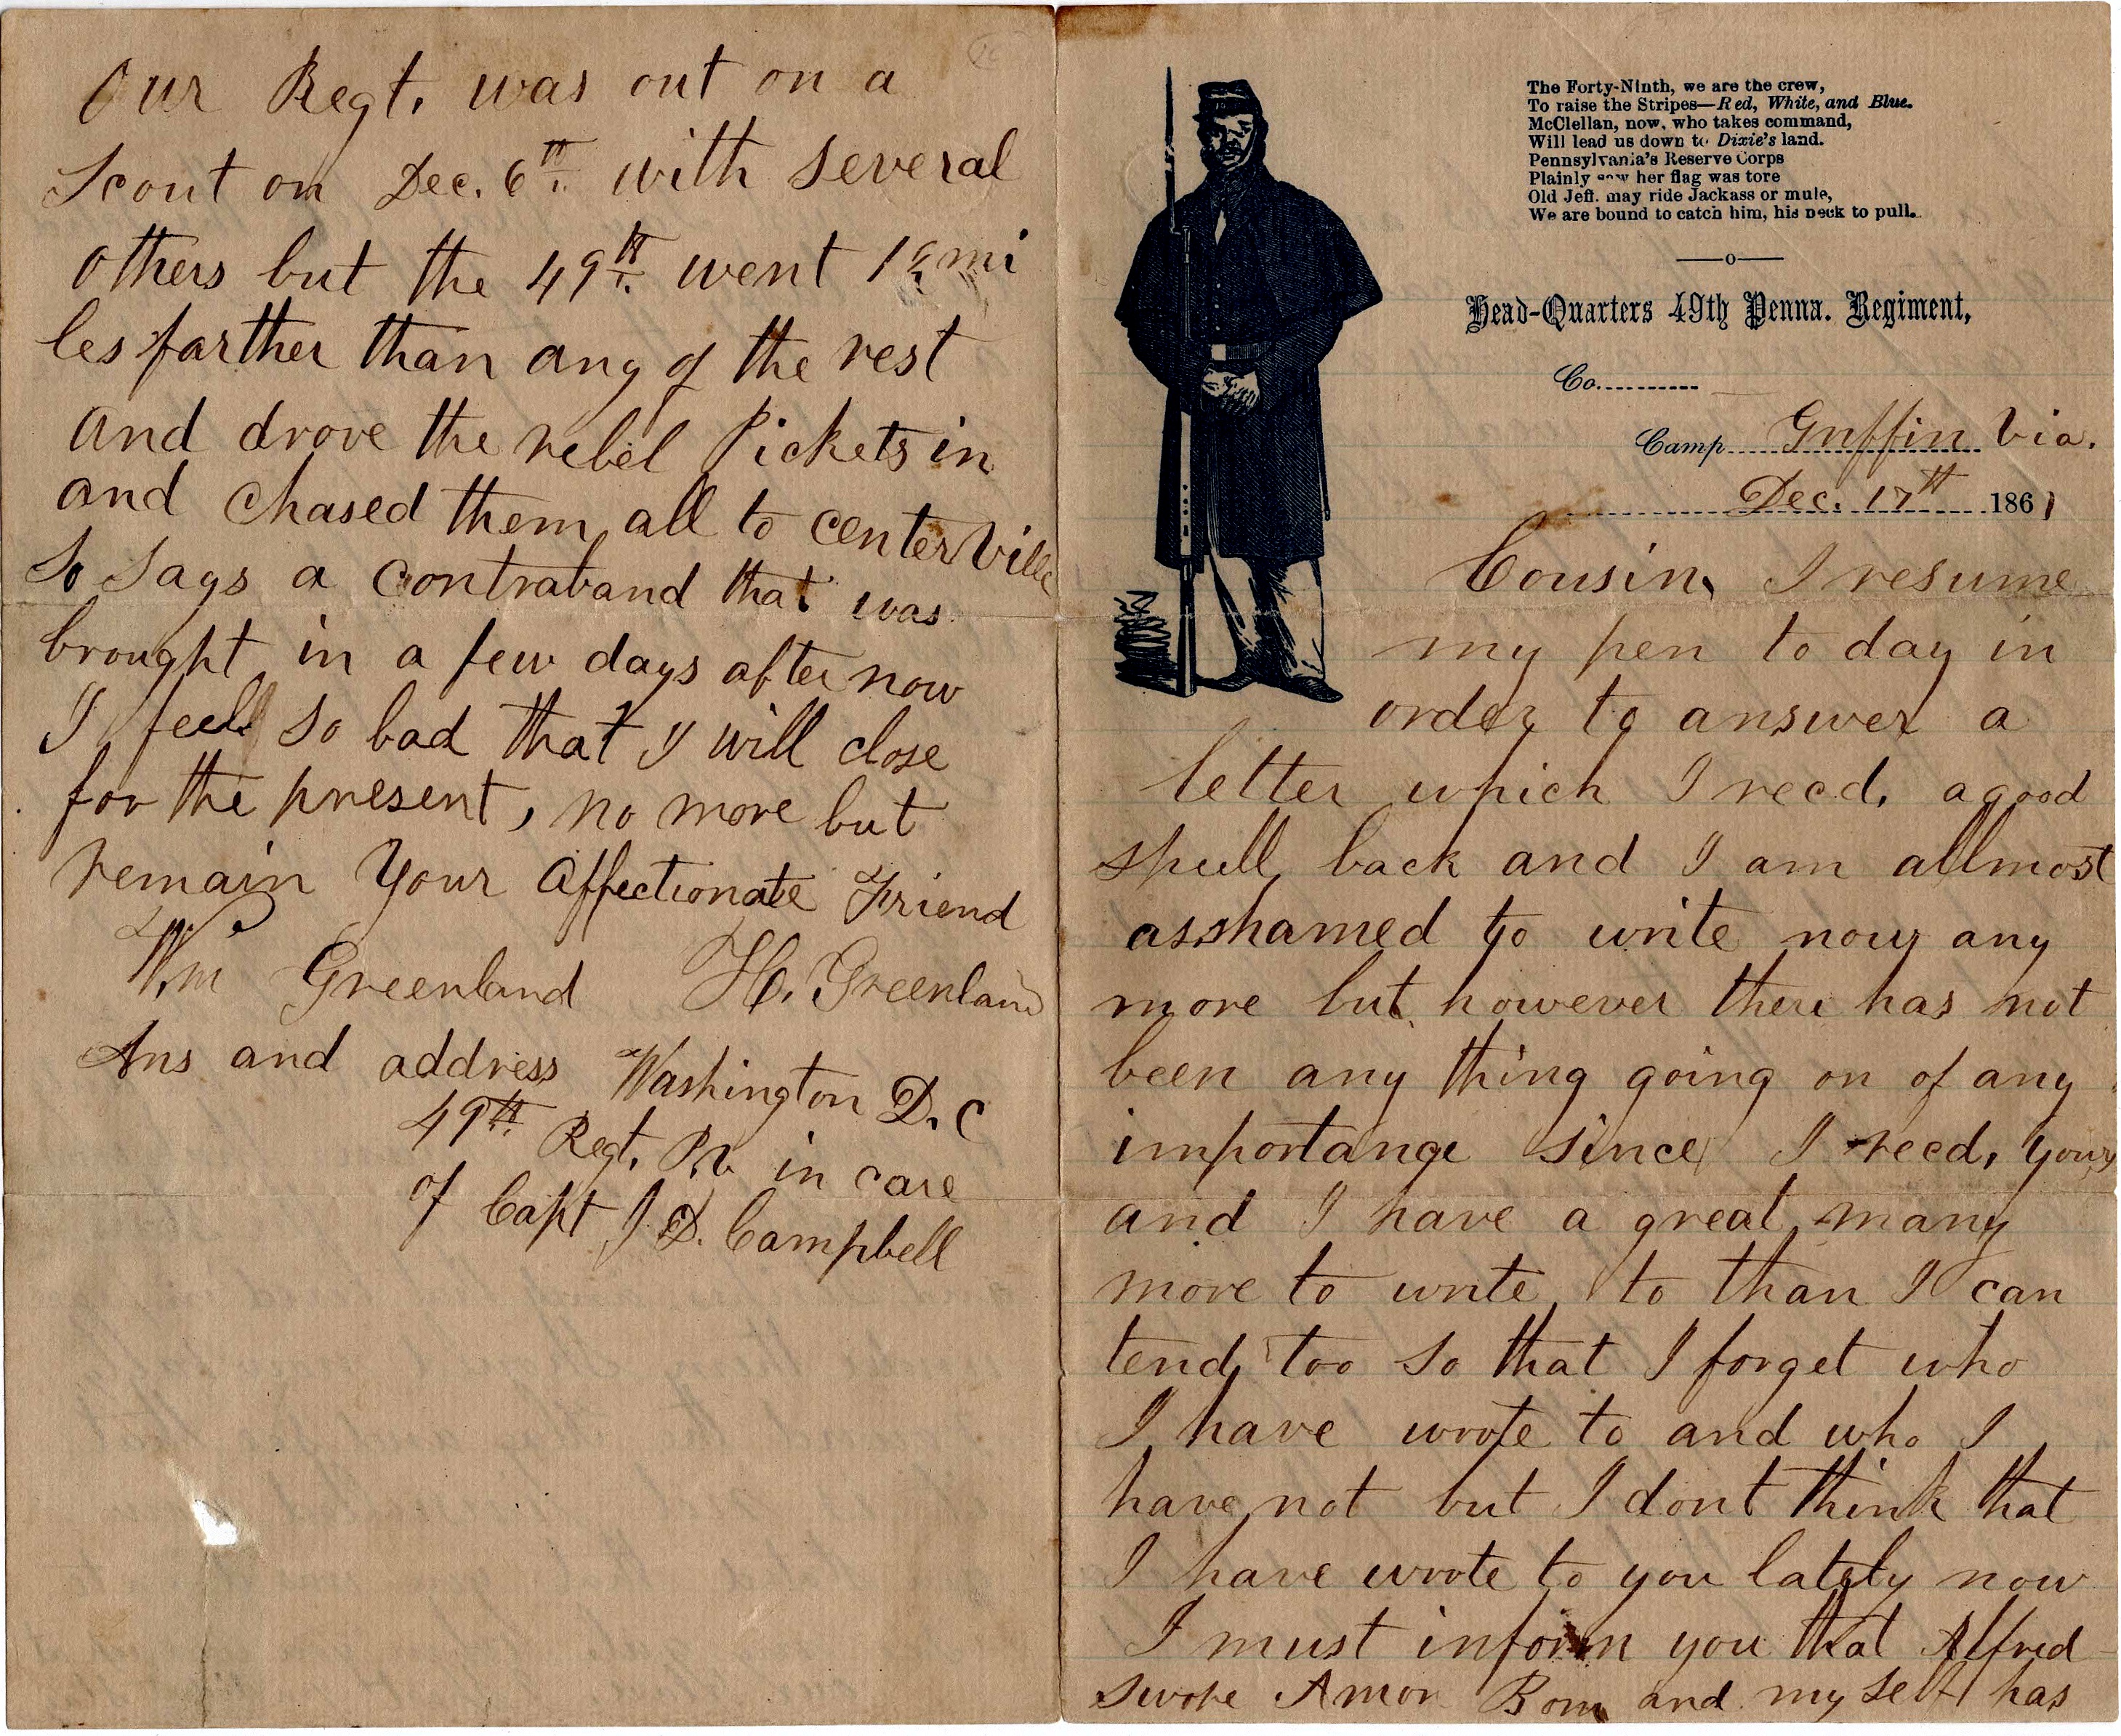 The Forty-Ninth, we are the crew,
To raise the Stripes—Red, White, and Blue.
McClellan, now, who takes command,
Will lead us down to Dixie's land.
Pennsylvania's Reserve Corps
Plainly saw her flag was tore
Old Jeff. may ride Jackass or mule,
We are bound to catch him, his neck to pull.
Head-Quarters 49th Penna. Regiment,
Co.
Camp Griffin Via.
Dec. 17th 1861
Cousin, I resume
my pen to day in
order to answer a
letter which I recd. a good
spell back and I am allmost
asshamed to write now any
more but however there has not
been any thing going on of any
importance since I recd, yours
and I have a great many
more to write to than I can
tend too so that I forget who
I have wrote to and who I
have not but I dont think that
I have wrote to you lately now
I must inform you that Alfred
swore Amon and my self has
Our Regt. was out on a
Scout on Dec. 6th with several
others but the 49th went mi
les farther than any of the rest
and drove the rebel Pickets in
and chased them all to centerville
So Says a contraband that was
brought in a few days after now
I feel so bad that I will close
for the present, no more but
remain Your affectionate Friend
Wm Greenland H. Greenland
Ans and address Washington D. C
49th Regt. P.V. in care
of Capt J. D. Campbell